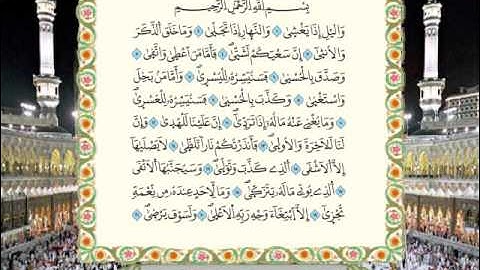 بِسْمِ اللَّهِ الرَّحْمَٰنِ الرَّحِيمِ
وَالَّيْلِ إِذَا يَغْشَىٰ وَالنَّهَارِ إِذَا تَجَلَّىٰ وَمَا خَلَقَ الذَّكَرَ
وَالْأُنثَىٰ إِنَّ سَعْيَكُمْ لَشَتَّىٰ فَأَمَّا مَنْ أَعْطَىٰ وَاتَّقَىٰ
وَصَدَّقَ بِالْحُسْنَىٰ فَسَنُيَسِّرُهُ لِلْيُسْرَىٰ وَأَمَّا مَن بَخِلَ
وَاسْتَغْنَىٰ وَكَذَّبَ بِالْحُسْنَىٰ فَسَنُيَسِّرُهُ لِلْعُسْرَىٰ
وَمَا يُغْنِي عَنْهُ مَالُهُ إِذَا تَرَدَّىٰ إِنَّ عَلَيْنَا لَلْهُدَىٰ وَإِنَّ
لَنَا لَلْآخِرَةَ وَالْأُولَىٰ فَأَنذَرْتُكُمْ نَارًا تَلَظَّىٰ لَا يَصْلَاهَا
إِلَّا الْأَشْقَى الَّذِي كَذَّبَ وَتَوَلَّىٰ وَسَيُجَنَّبُهَا الْأَتْقَى
الَّذِي يُؤْتِي مَالَهُ يَتَزَكَّىٰ وَمَا لِأَحَدٍ عِندَهُ مِن نِّعْمَةٍ
تُجْزَىٰ إِلَّا ابْتِغَاءَ وَجْهِ رَبِّهِ الْأَعْلَىٰ وَلَسَوْفَ يَرْضَىٰ